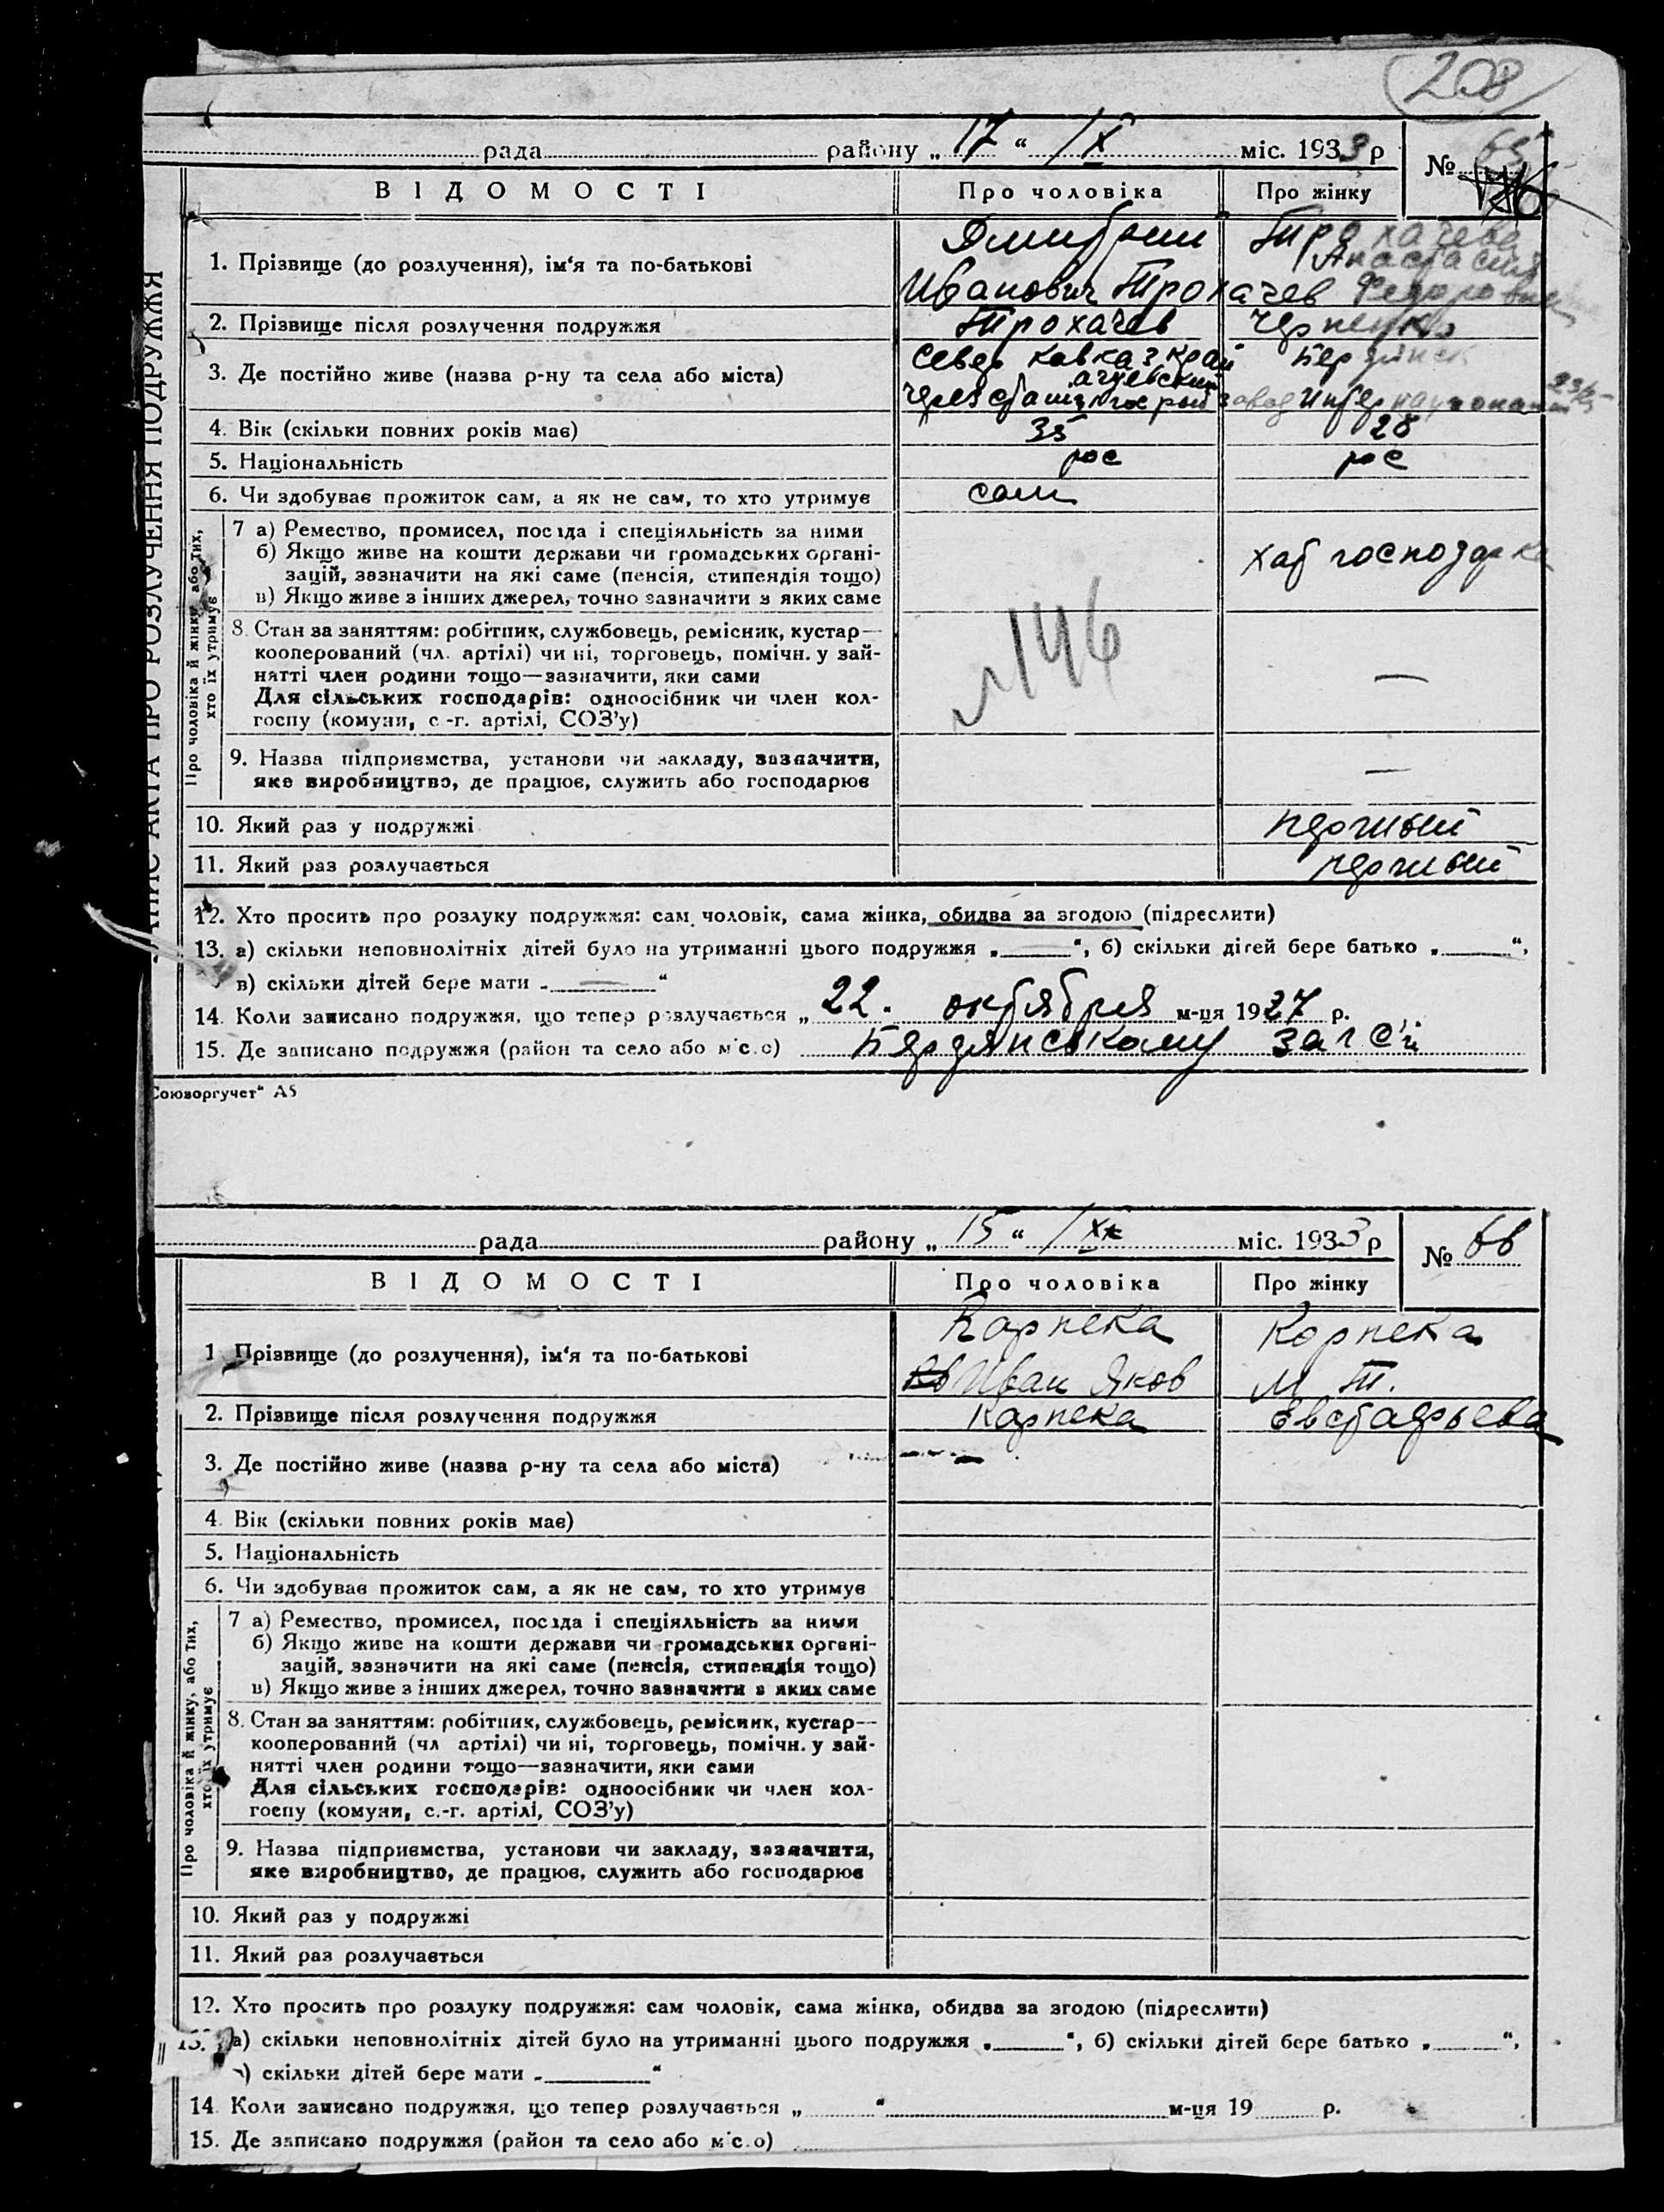 208
рада району „ 17 “ IX міс. 1933 р
№ 65
ЗАПИС АКТА ПРО РОЗЛУЧЕННЯ ПОДРУЖЖЯ
ВІДОМОСТІ Про чоловіка Про жінку
1. Прізвище (до розлучення), ім‘я та по-батькові
Дмитрий Трохачева
Анастасия
Иванович Трохачев Федоровна
2. Прізвище після розлучення подружжя Трохачев
3. Де постійно живе (назва р-ну та села або міста)
Север Кавказ край Бердянск
завод Интернационал
4. Вік (скільки повних років має) 35 28
5. Національність рос рос
6. Чи здобуває прожиток сам, а як не сам, то хто утримує сам
Про чоловіка й жінку, або тих,
хто їх утримує
7 а) Ремество, промисел, посада і спеціяльність за ними
б) Якщо живе на кошти держави чи громадських органі-
зацій, зазначити на які саме (пенсія, стипендія тощо)
в) Якщо живе з інших джерел, точно зазначити з яких саме
хат господарка
№ 146
8. Стан за заняттям: робітник, службовець, ремісник, кустар—
кооперований (чл. артілі) чи ні, торговець, помічн. у зай-
нятті член родини тощо—зазначити, яки сами
Для сільських господарів: одноосібник чи член кол-
госпу (комуни, с.-г. артілі, СОЗ’у)
—
9. Назва підприємства, установи чи закладу, зазначити,
яке виробництво, де працює, служить або господарює
—
10. Який раз у подружжі первый
11. Який раз розлучається первый
12. Хто просить про розлуку подружжя: сам чоловік, сама жінка, обидва за згодою (підреслити)
13. а) скільки неповнолітніх дітей було на утриманні цього подружжя „ — “, б) скільки дітей бере батько „ “,
в) скільки дітей бере мати „ — “
14. Коли записано подружжя, що тепер розлучається „ 22. октября м-ця 1927 р.
15. Де записано подружжя (район та село або місто) Бердянському ЗагСі
Союзоргучет“ А5
рада району „ 15 “ IX міс. 1933 р
№ 66
ВІДОМОСТІ Про чоловіка Про жінку
Карпека Карпека
1. Прізвище (до розлучення), ім‘я та по-батькові
Иван Яков М Т.
2. Прізвище після розлучення подружжя Карпека Евстафьева
3. Де постійно живе (назва р-ну та села або міста)
4. Вік (скільки повних років має)
5. Національність
6. Чи здобуває прожиток сам, а як не сам, то хто утримує
Про чоловіка й жінку, або тих,
хто їх утримує
7 а) Ремество, промисел, посада і спеціяльність за ними
б) Якщо живе на кошти держави чи громадських органі-
зацій, зазначити на які саме (пенсія, стипендія тощо)
в) Якщо живе з інших джерел, точно зазначити з яких саме
8. Стан за заняттям: робітник, службовець, ремісник, кустар—
кооперований (чл артілі) чи ні, торговець, помічн. у зай-
нятті член родини тощо—зазначити, яки сами
Для сільських господарів: одноосібник чи член кол-
госпу (комуни, с.-г. артілі, СОЗ’у)
9. Назва підприємства, установи чи закладу, зазначити,
яке виробництво, де працює, служить або господарює
10. Який раз у подружжі
11. Який раз розлучається
12. Хто просить про розлуку подружжя: сам чоловік, сама жінка, обидва за згодою (підреслити)
13. а) скільки неповнолітніх дітей було на утриманні цього подружжя „ “, б) скільки дітей бере батько „ “,
в) скільки дітей бере мати „ “
14. Коли записано подружжя, що тепер розлучається „ “ м-ця 19 р.
15. Де записано подружжя (район та село або місто)